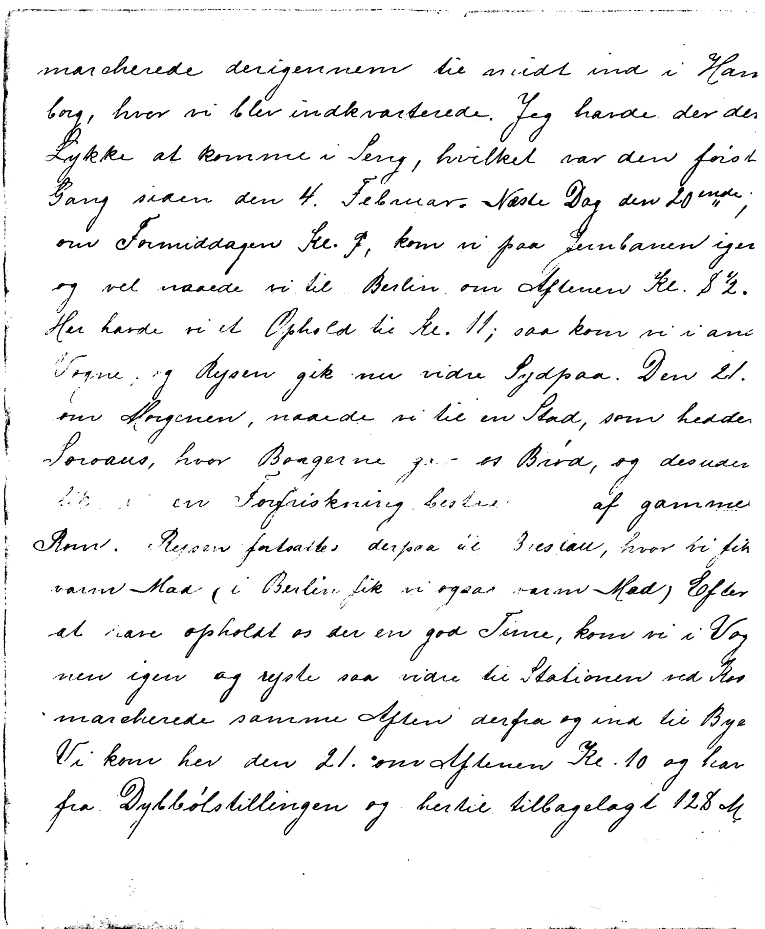 marcherede derigennem til midt ind i Ham
borg, hvor vi blev indkvarterede. Jeg havde der den
Lykke at komme i Seng, hvilket var den först
Gang siden den 4. Februar. Næste Dag den 20ende,
om Formiddagen Kl. 9, kom vi paa Jernbanen igen
og vel naaede vi til Berlin om Aftenen Kl. 8 1/2.
Her havde vi et Ophold til Kl. 11; saa kom vi i and
Vogne, og Rejsen gik nu vidre Sydpaa. Den 21.
om Morgenen, naaede vi til en Stad, som hedder
hvor Borgerne os Bröd, og desuden
en Forfriskning af gammel
Rom. Rejsen fortsattes derpaa til Breslau, hvor vi fik
varm Mad (i Berlin fik vi ogsaa varm Mad) Efter
at have opholdt os der en god Time, kom vi i Vog
nen igen og rejste saa vidre til Stationen ved Kos
marcherede samme Aften derfra og ind til Bye
Vi kom her den 21. om Aftenen Kl. 10 og har
fra Dybbölstillingen og hertil tilbagelagt 128 M